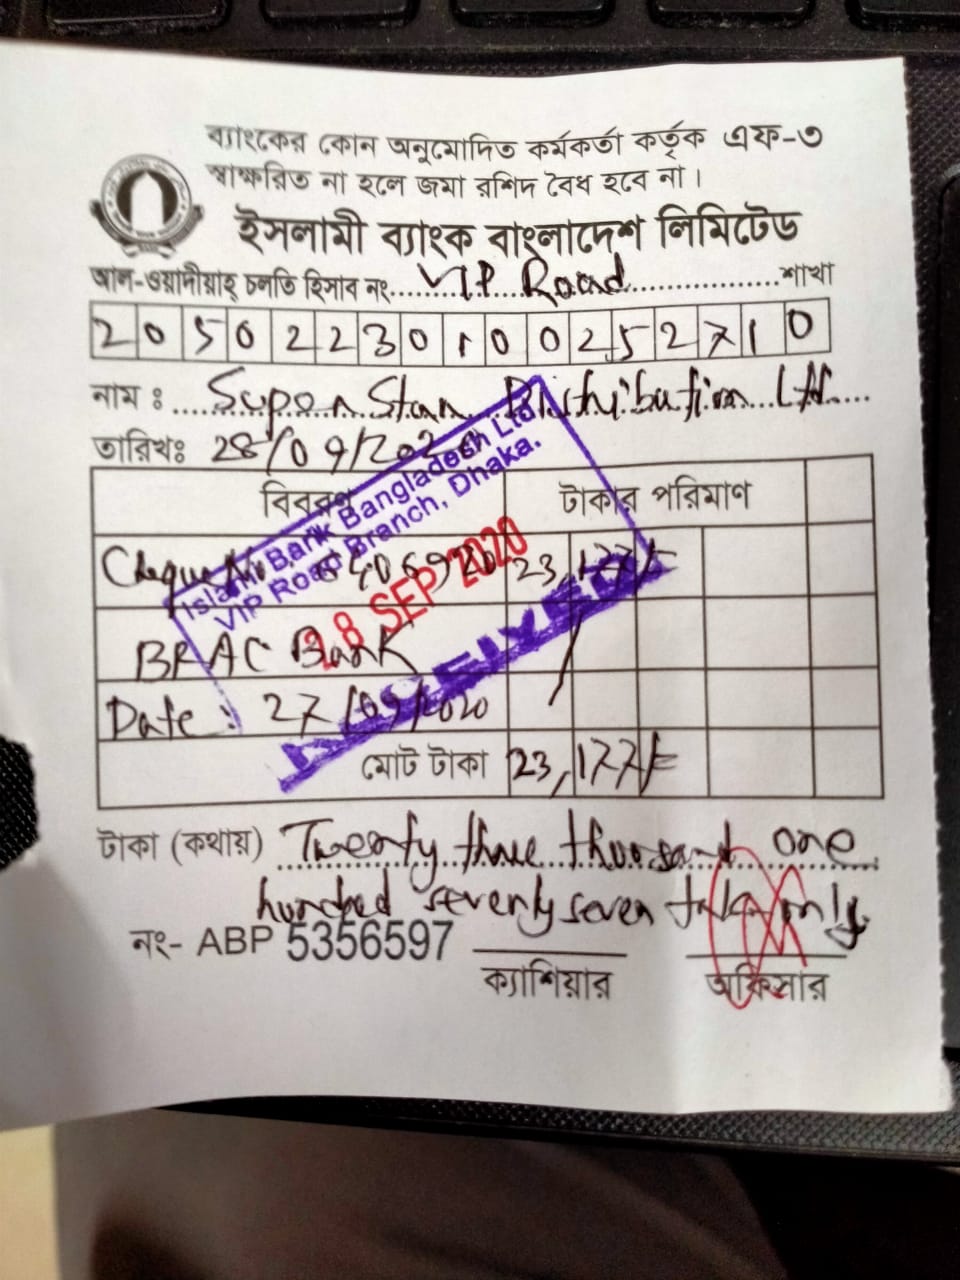 ব্যাংকের কোন অনুমোদিত কর্মকর্তা কর্তৃক এফ-৩
স্বাক্ষরিত না হলে জমা রশিদ বৈধ হবে না।
ইসলামী ব্যাংক বাংলাদেশ লিমিটেড
আল-ওয়াদীয়াহ্ চলতি হিসাব নং..... VIP Road ..........শাখা
2 0 5 0 2 2 3 0 1 0 0 2 5 2 7 1 0
নাম : Super Star Distribution Ltd.
তারিখঃ 28/09/2020
বিবরণ টাকার পরিমাণ
Cheque No 23,177/=
BRAC Bank
Date: 27/09/2020
মোট টাকা 23,177/=
Islami Bank Bangladesh Ltd.
VIP Road Branch, Dhaka.
28 SEP 2020
টাকা (কথায়) Twenty three thousand one
hundred seventy seven taka only.
নং- ABP 5356597
ক্যাশিয়ার অফিসার